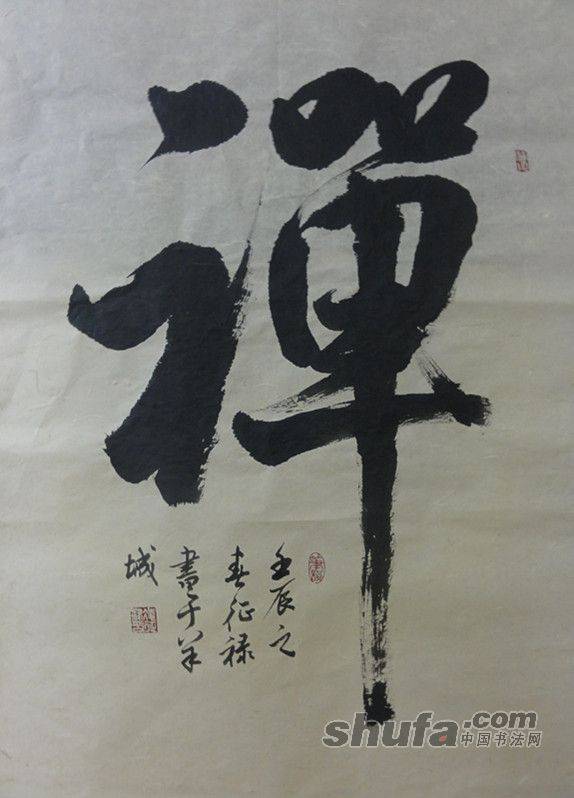 禪
壬辰之
春征禄
書于羊
城
shufa.com
中国书法网